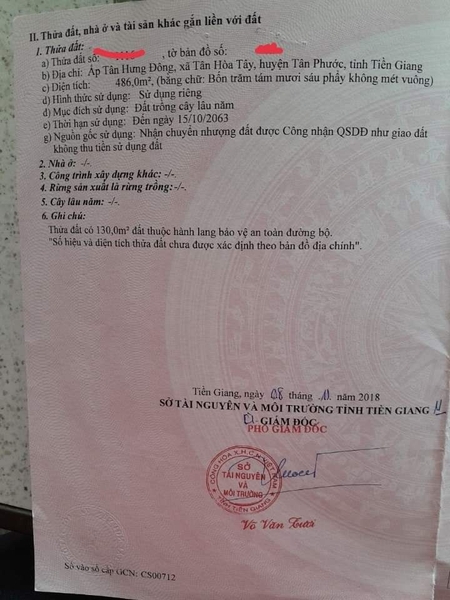 II. Thửa đất, nhà ở và tài sản khác gắn liền với đất
1. Thửa đất:
a) Thửa đất số: , tờ bản đồ số:
b) Địa chỉ: Ấp Tân Hưng Đông, xã Tân Hòa Tây, huyện Tân Phước, tỉnh Tiền Giang
c) Diện tích: 486,0m², (bằng chữ: Bốn trăm tám mươi sáu phẩy không mét vuông)
d) Hình thức sử dụng: Sử dụng riêng
đ) Mục đích sử dụng: Đất trồng cây lâu năm
e) Thời hạn sử dụng: Đến ngày 15/10/2063
g) Nguồn gốc sử dụng: Nhận chuyển nhượng đất được Công nhận QSDĐ như giao đất
không thu tiền sử dụng đất
2. Nhà ở: -/-.
3. Công trình xây dựng khác: -/-.
4. Rừng sản xuất là rừng trồng: -/-.
5. Cây lâu năm: -/-.
6. Ghi chú:
Thửa đất có 130,0m² đất thuộc hành lang bảo vệ an toàn đường bộ.
"Số hiệu và diện tích thửa đất chưa được xác định theo bản đồ địa chính".
Tiền Giang, ngày 08 tháng 11 năm 2018
SỞ TÀI NGUYÊN VÀ MÔI TRƯỜNG TỈNH TIỀN GIANG
GIÁM ĐỐC
PHÓ GIÁM ĐỐC
CỘNG HÒA X.H.C.N VIỆT NAM
SỞ
TÀI NGUYÊN
VÀ
MÔI TRƯỜNG
TỈNH TIỀN GIANG
Võ Văn Tươi
Số vào sổ cấp GCN: CS00712